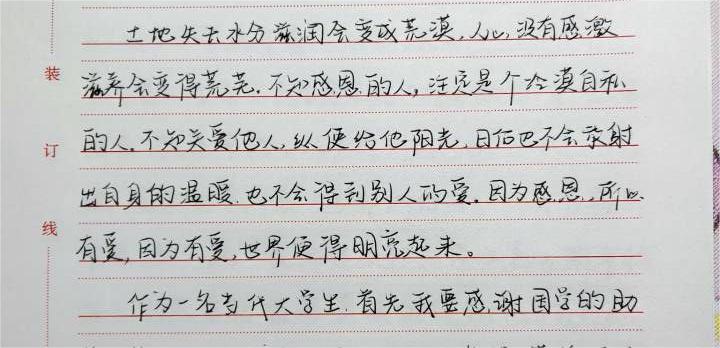 土地失去水分滋润会变成荒漠,人心没有感激
滋养会变得荒芜.不知感恩的人,注定是个冷漠自私
的人.不知关爱他人,纵使给他阳光,日后也不会放射
出自身的温暖.也不会得到别人的爱.因为感恩,所以
有爱,因为有爱,世界便得明亮起来。
作为一名当代大学生.首先我要感谢国学的助
装
订
线